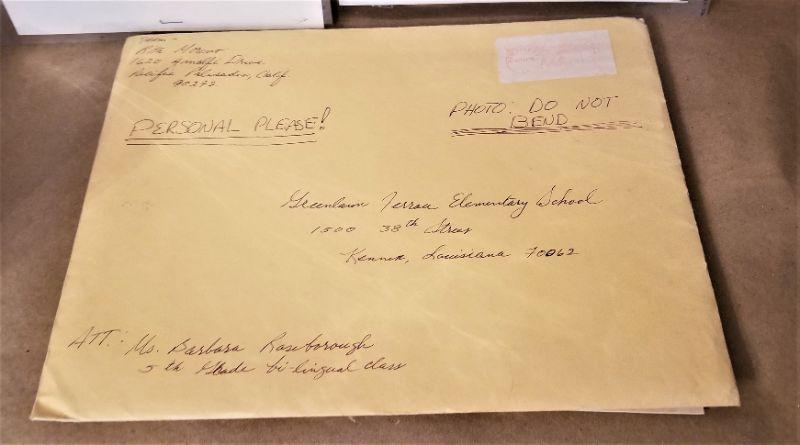 From -
Rita Moreno
1620 Amalfi Drive
Pacific Palisades, Calif.
90272
PERSONAL PLEASE!
PHOTO: DO NOT
BEND
Greenlawn Terrace Elementary School
1500 38th Street
Kenner, Louisiana 70062
ATT: Ms. Barbara Roseborough
5th Grade bi-lingual class